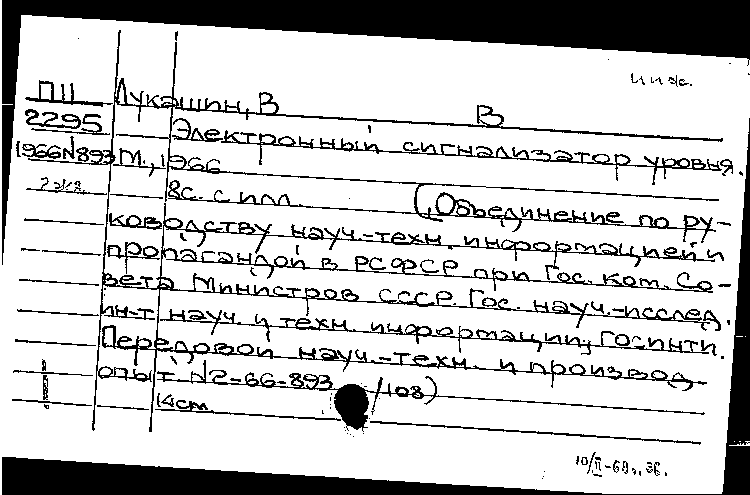 инж.
П11 Лукашин, В В
2295 Электронный сигнализатор уровня.
1966N893 М., 1966
2 экз. 8с. с илл. (Объединение по ру-
ководству науч.-техн. информацией и
пропагандой в РСФСР при Гос. ком. Со-
вета Министров СССР. Гос. науч.-исслед.
ин-т науч. и техн. информации, ГОСИНТИ.
Передовой науч.-техн. и производ.
опыт N2-66-893 /108)
14см
10/II-69г.